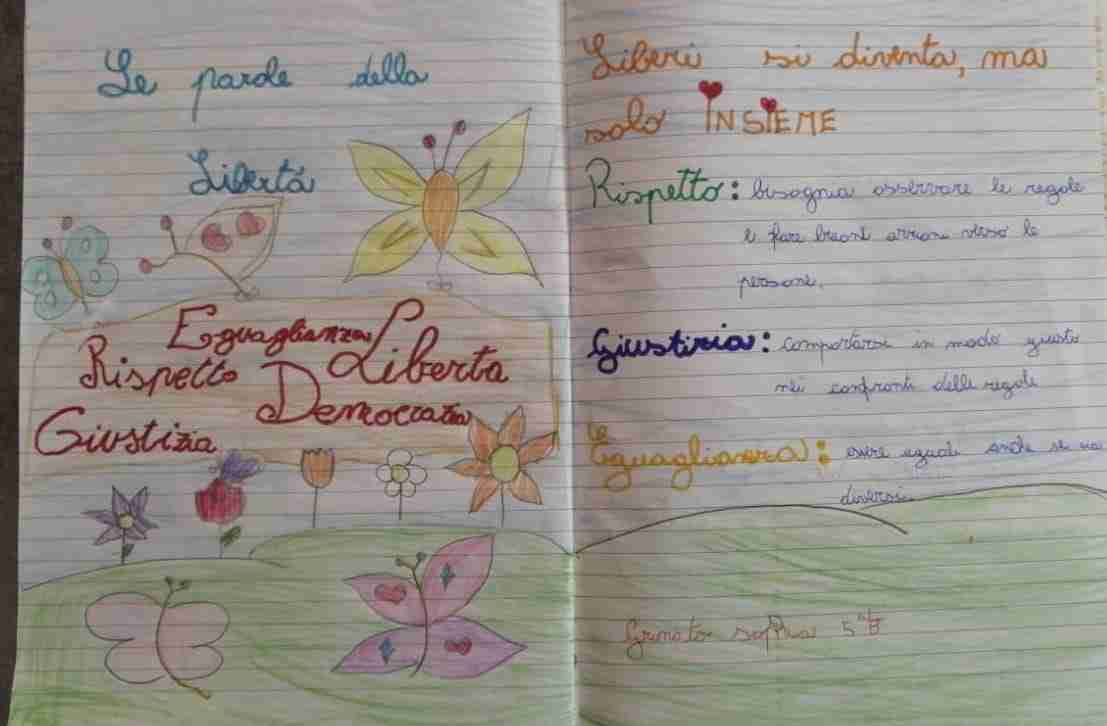 Le parole della
Libertà
Eguaglianza
Libertà
Rispetto
Democrazia
Giustizia
Liberi si diventa, ma
solo INSIEME
Rispetto: bisognia osservare le regole
e fare buoni azioni verso le
persone.
Giustizia: comportarsi in modo giusto
nei confronti delle regole
Eguaglianza: essere uguali anche se
diversi.
sofhia 5ªB